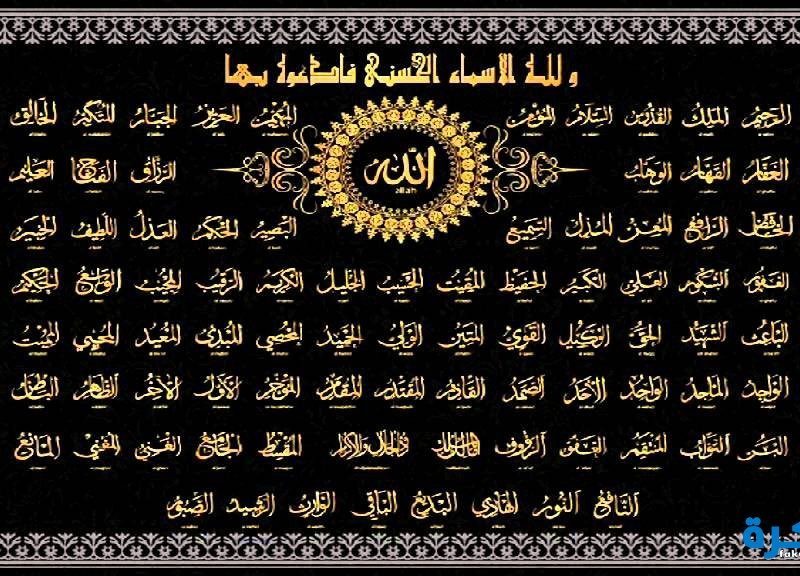 ولله الاسماء الحسنى فادعوه بها
الرحيم الملك القدوس السلام المؤمن المهيمن العزيز الجبار المتكبر الخالق
الله
allah
الغفار القهار الوهاب الرزاق الفتاح العليم
الرافع المعز المذل السميع البصير الحكم العدل اللطيف الخبير
الغفور الشكور العلي الكبير الحفيظ المقيت الحسيب الجليل الكريم الرقيب المجيب الواسع الحكيم
الباعث الشهيد الحق الوكيل القوي المتين الولي الحميد المحصي المبدئ المعيد المحيي المميت
الواجد الماجد الواحد الأحد الصمد القادر المقتدر المقدم المؤخر الأول الآخر الظاهر الباطن
التواب المنتقم العفو الرؤوف مالك الملك ذو الجلال والإكرام المقسط الجامع الغني المغني المانع
النافع النور الهادي البديع الباقي الوارث الرشيد الصبور